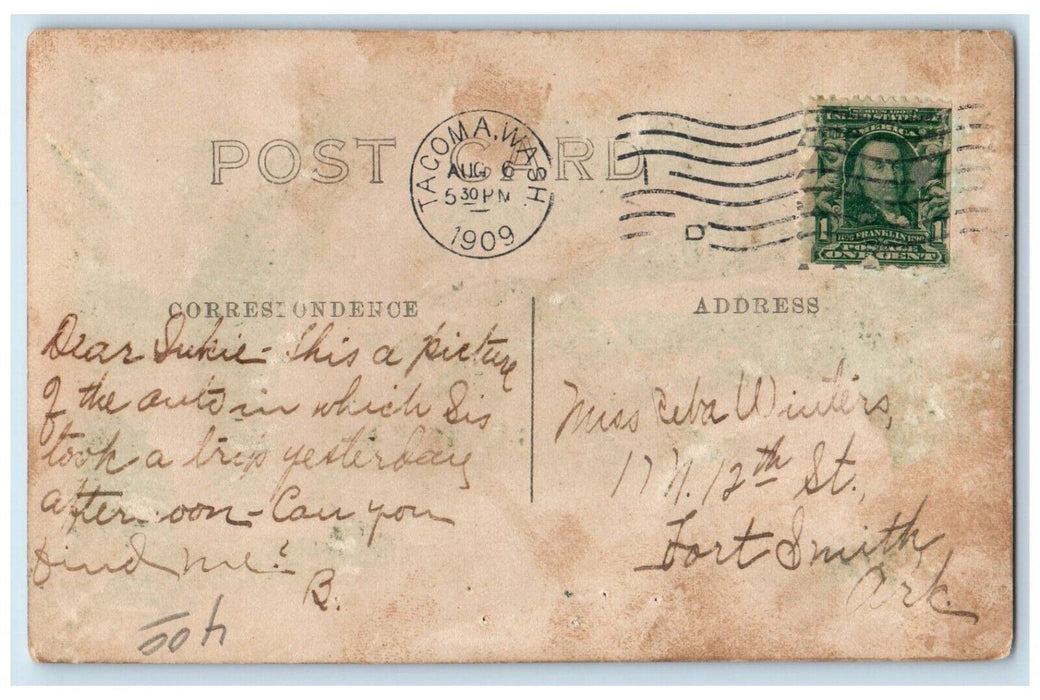 POST CARD
TACOMA, WASH.
AUG 6
5 30 PM
1909
D
SERIES 1902
UNITED STATES OF
AMERICA
1 1706 FRANKLIN 1790 1
POSTAGE
ONE CENT
CORRESPONDENCE
ADDRESS
Dear Sukie - This a picture
of the auto in which Sis
took a trip yesterday
afternoon - Can you
find me?
B.
Miss Reba Winters,
17 N. 12th St.,
Fort Smith,
Ark.
400